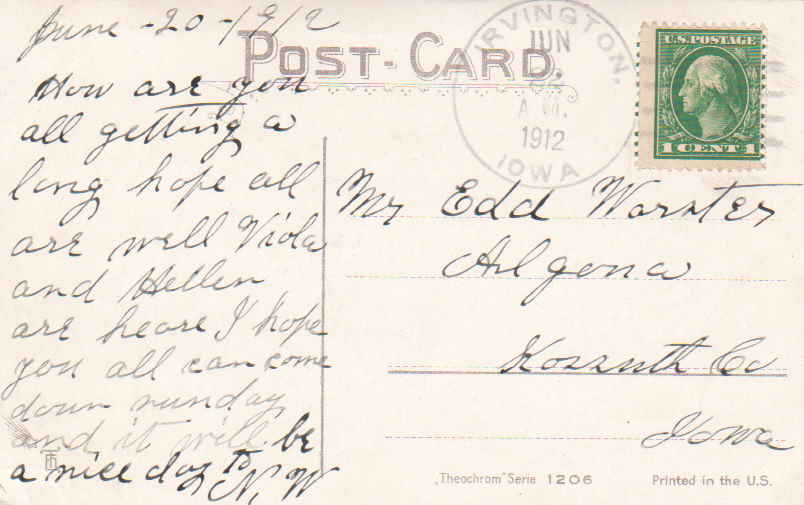 June - 20 - 1912
POST-CARD.
IRVINGTON,
JUN
A.M.
1912
IOWA
U.S. POSTAGE
1 CENT 1
How are you
all getting a
long hope all
are well Viola
and Hellen
are heare I hope
you all can come
down sunday
and it will be
a nice day to
N, W
Mr Edd Worster
Algona
Kossuth Co
Iowa
„Theochrom" Serie 1206
Printed in the U.S.